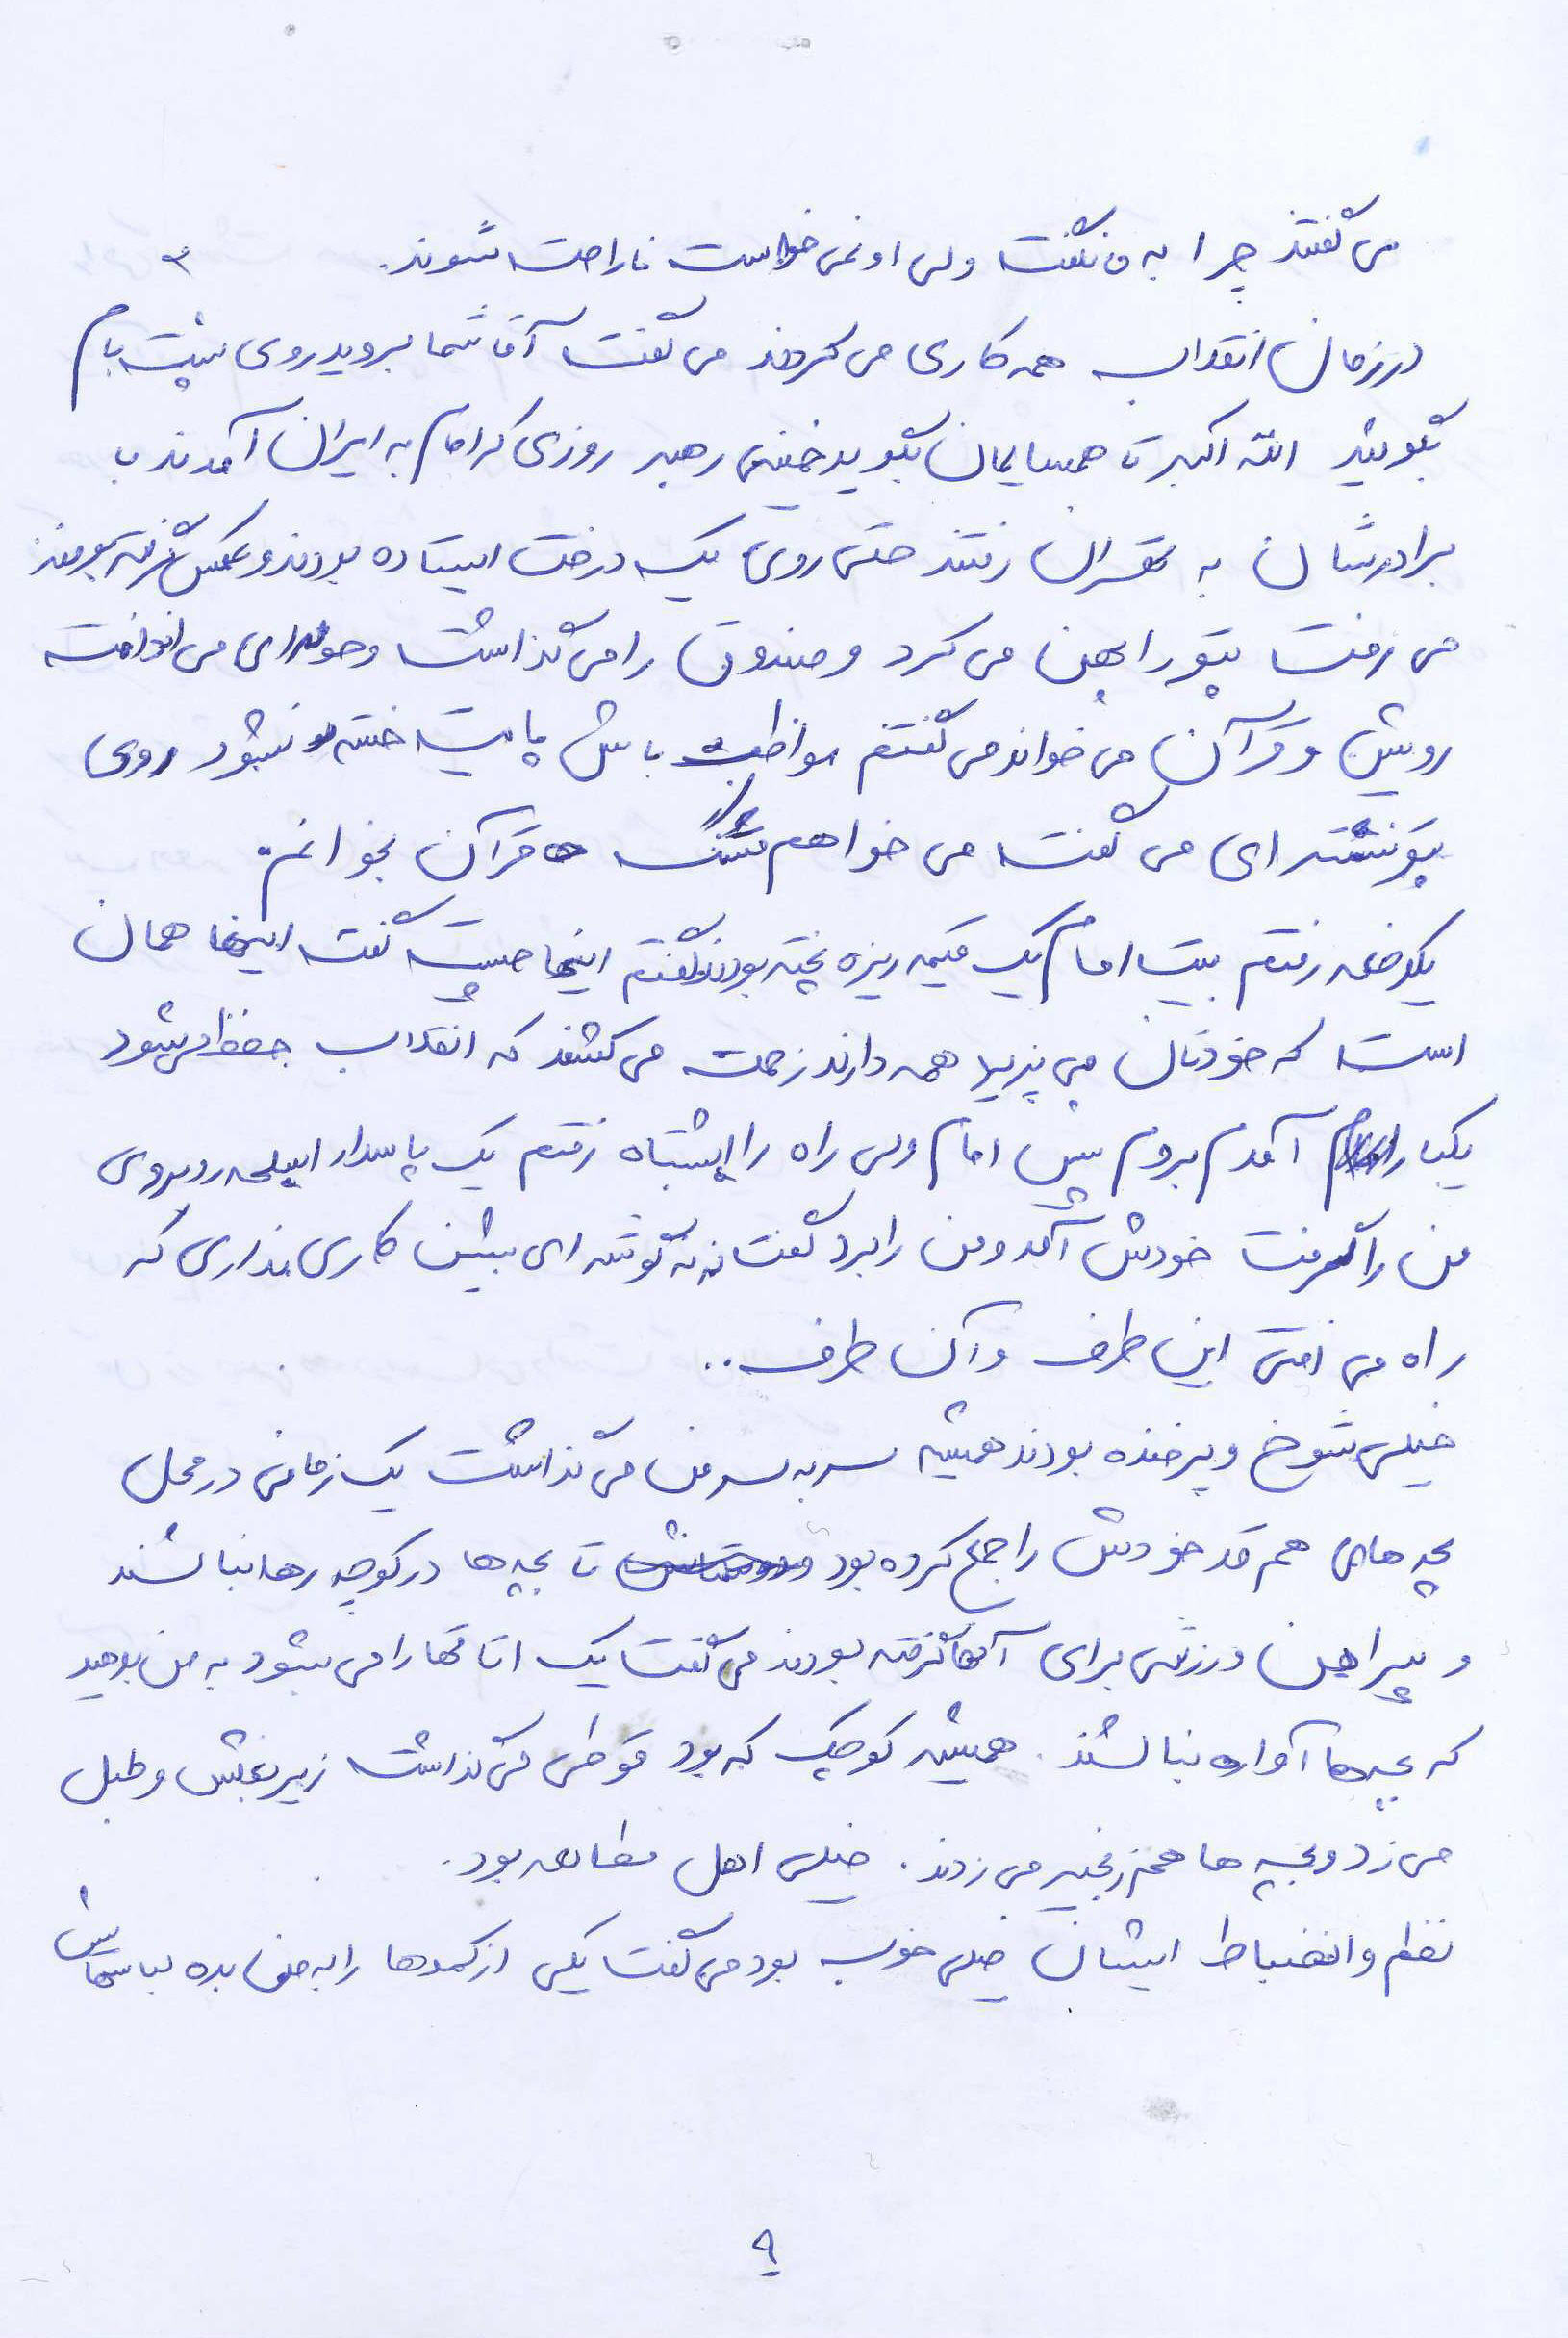 می گفتند چرا به ما نگفت ولی او نمی خواست ناراحت شوند.
در زمان انقلاب همه کاری می کردند می گفت آقا شما بروید روی پشت بام
بگوئید الله اکبر تا همسایمان بگوید خمینی رهبر روزی که امام به ایران آمدند با
برادرشان به تهران رفتند حتی روی یک درخت ایستاده بودند و عکس گرفته بودند
می رفت پتو را پهن می کرد و صندوق را می گذاشت و حوله ای می انداخت
رویش و قرآن می خواند می گفتم مواظب باش پایت خسته نشود روی
پتو نشسته ای می گفت می خواهم قشنگ قرآن بخوانم.
یکدفعه رفتم بیت امام یک قیمه ریزه پخته بودند گفتم اینها چیست گفت اینها همان
است که خودتان می پزید همه دارند زحمت می کشند که انقلاب حفظ شود
یکبار آمدم بروم پیش امام ولی راه را اشتباه رفتم یک پاسدار اسلحه روبروی
من را گرفت خودش آمد و من را برد گفت ننه گوشه ای بشین کاری نداری که
راه می افتی این طرف و آن طرف..
خیلی شوخ و پرخنده بودند همیشه سر به سر من می گذاشت یک زمانی در محل
بچه های هم قد خودش را جمع کرده بود تا بچه ها در کوچه رها نباشند
و پیراهن ورزشی برای آنها گرفته بودند می گفت یک اتاقها را می شود به من بدهید
که بچه ها آواره نباشند. همیشه کوچک که بود قوطی می گذاشت زیر بغلش و طبل
می زد و بچه ها هم زنجیر می زدند. خیلی اهل مطالعه بود.
نظم و انضباط ایشان خیلی خوب بود می گفت یکی از کمدها را به من بده لباسهاش
۹